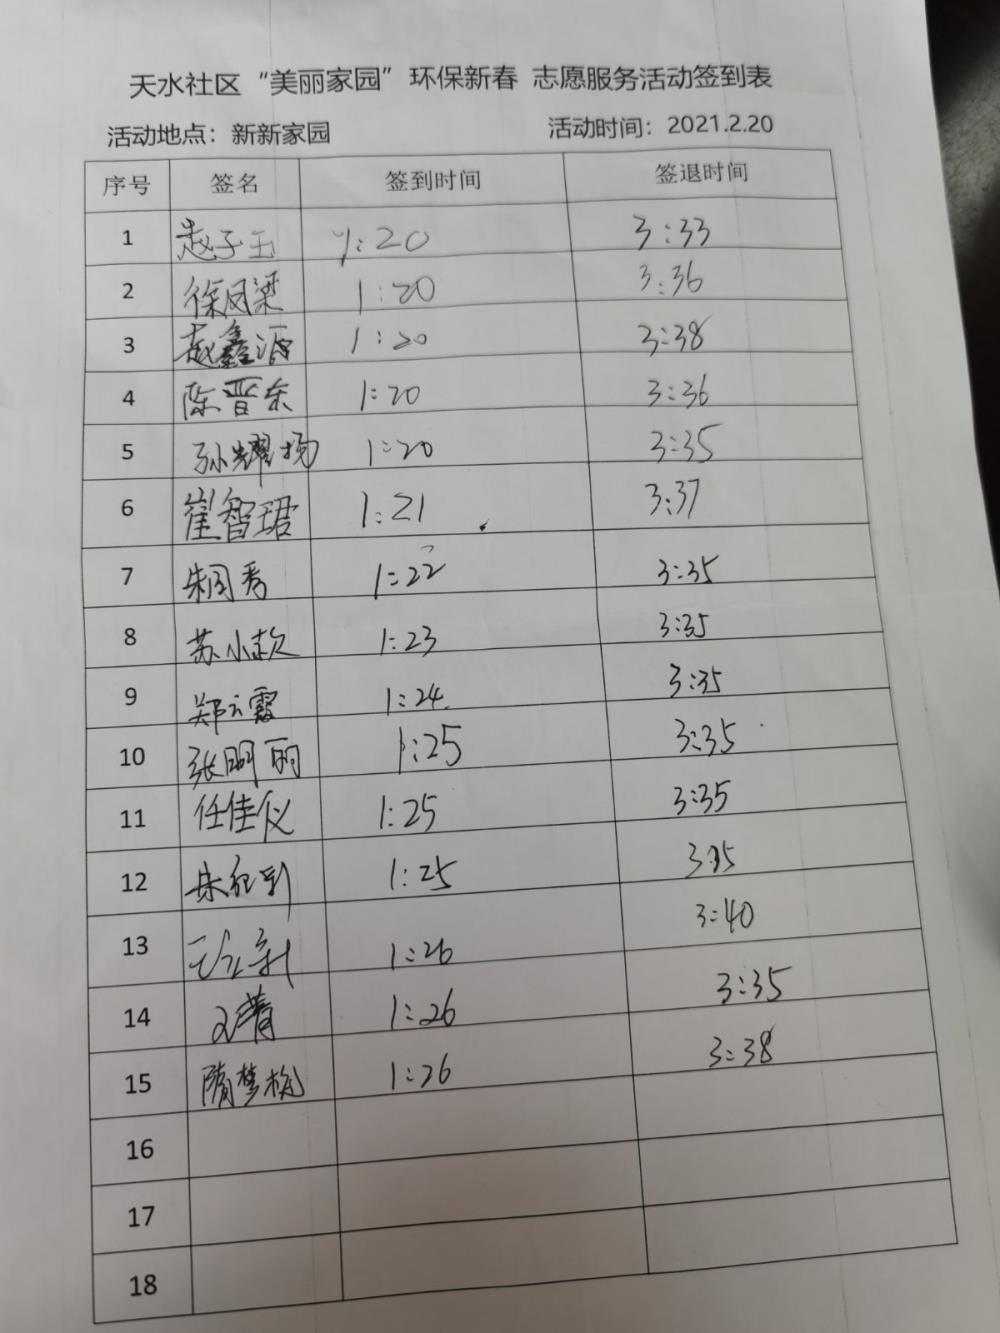 天水社区“美丽家园”环保新春 志愿服务活动签到表
活动地点：新新家园 活动时间：2021.2.20
序号 签名 签到时间 签退时间
1 赵子玉 1:20 3:33
2 徐凤梁 1:20 3:36
3 赵鑫源 1:20 3:38
4 陈晋东 1:20 3:36
5 孙耀扬 1:20 3:35
6 崔智珺 1:21 3:37
7 1:22 3:35
8 苏小款 1:23 3:35
9 郑云霞 1:24 3:35
10 张明丽 1:25 3:35
11 任佳仪 1:25 3:35
12 1:25 3:35
13 1:26 3:40
14 1:26 3:35
15 隋梦 1:26 3:38
16
17
18